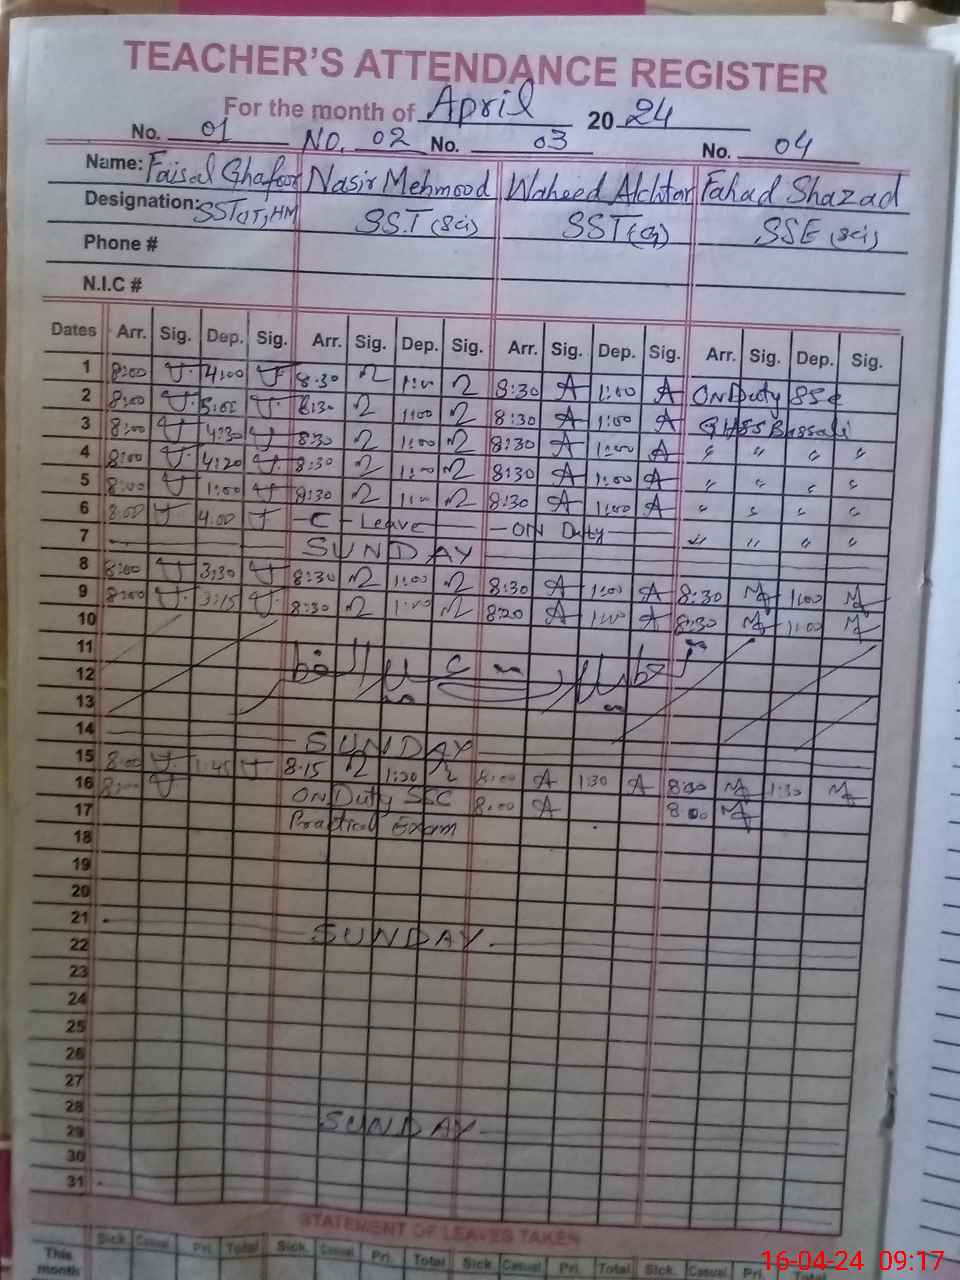 TEACHER'S ATTENDANCE REGISTER
For the month of April 2024
No. 01 NO. 02 No. 03 No. 04
Name: Faisal Ghafoor Nasir Mehmood Waheed Akhtar Fahad Shazad
Designation: SST(IT), HM SST (Sci) SST(G) SSE (Sci)
Phone #
N.I.C #
Dates Arr. Sig. Dep. Sig. Arr. Sig. Dep. Sig. Arr. Sig. Dep. Sig. Arr. Sig. Dep. Sig.
1 8:00 4:00 8:30 1:00 8:30 A 1:00 A ON Duty SSC
2 8:00 5:00 8:30 1:00 8:30 A 1:00 A GHSS
3 8:00 4:30 8:30 1:00 8:30 A 1:00 A " " " "
4 8:00 4:20 8:30 1:00 8:30 A 1:00 A " " " "
5 8:00 1:00 8:30 1:00 8:30 A 1:00 A " " " "
6 8:00 4:00 C - Leave ON Duty " " " "
7 SUNDAY
8 8:00 3:30 8:30 1:00 8:30 A 1:00 A 8:30 1:00
9 8:00 3:15 8:30 1:00 8:20 A 1:00 A 8:30 1:00
10
11
12
13
14 SUNDAY
15 8:00 1:45 8:15 1:30 8:00 A 1:30 A 8:30 1:30
16 8:00 ON Duty SSC 8:00 A 8:00
17 Practical Exam
18
19
20
21 SUNDAY
22
23
24
25
26
27
28 SUNDAY
29
30
31
STATEMENT OF LEAVES TAKEN
This month Sick Casual Pri. Total Sick. Casual Pri. Total Sick Casual Pri. Total Sick. Casual Pri. Total
16-04-24 09:17